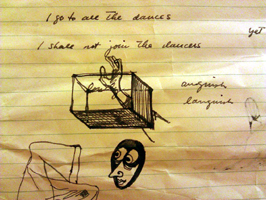 I go to all the dances
yet
I shall not join the dancers
anguish
languish